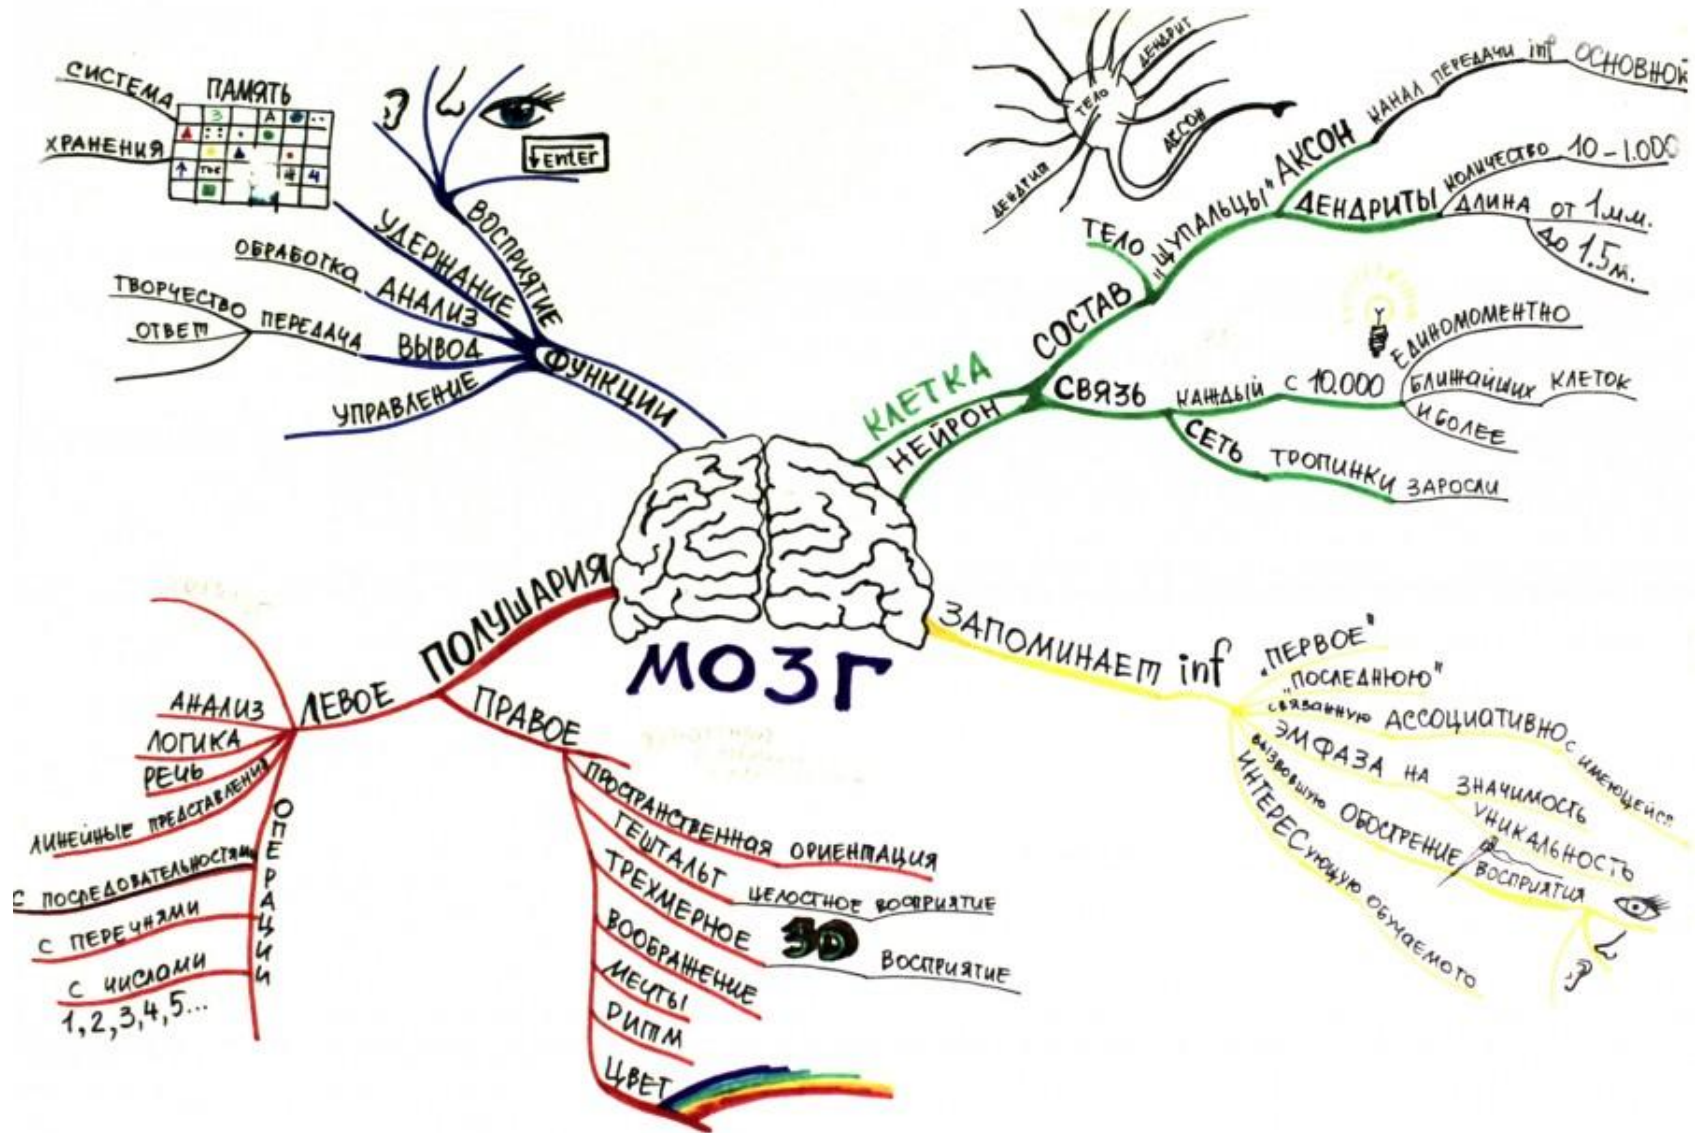 СИСТЕМА
ХРАНЕНИЯ
ПАМЯТЬ
3
А
4
↓ Enter
ВОСПРИЯТИЕ
УДЕРЖАНИЕ
ОБРАБОТКА
АНАЛИЗ
ТВОРЧЕСТВО
ОТВЕТ
ПЕРЕДАЧА
ВЫВОД
УПРАВЛЕНИЕ
ФУНКЦИИ
ДЕНДРИТ
ТЕЛО
АКСОН
КЛЕТКА
НЕЙРОН
СОСТАВ
ТЕЛО
"ЩУПАЛЬЦЫ"
АКСОН
КАНАЛ ПЕРЕДАЧИ inf ОСНОВНОЙ
ДЕНДРИТЫ
КОЛИЧЕСТВО 10-1.000
ДЛИНА ОТ 1мм.
ДО 1.5м.
СВЯЗЬ
КАЖДЫЙ С 10.000
ЕДИНОМОМЕНТНО
БЛИЖАЙШИХ КЛЕТОК
И БОЛЕЕ
СЕТЬ ТРОПИНКИ ЗАРОСЛИ
МОЗГ
ПОЛУШАРИЯ
ЛЕВОЕ
АНАЛИЗ
ЛОГИКА
РЕЧЬ
ЛИНЕЙНЫЕ ПРЕДСТАВЛЕНИЯ
ОПЕРАЦИИ
С ПОСЛЕДОВАТЕЛЬНОСТЯМИ
С ПЕРЕЧНЯМИ
С ЧИСЛАМИ
1,2,3,4,5...
ПРАВОЕ
ПРОСТРАНСТВЕННАЯ ОРИЕНТАЦИЯ
ГЕШТАЛЬТ ЦЕЛОСТНОЕ ВОСПРИЯТИЕ
ТРЕХМЕРНОЕ 3D ВОСПРИЯТИЕ
ВООБРАЖЕНИЕ
МЕЧТЫ
РИТМ
ЦВЕТ
ЗАПОМИНАЕТ inf
"ПЕРВОЕ"
"ПОСЛЕДНЮЮ"
СВЯЗАННУЮ АССОЦИАТИВНО С ИМЕЮЩЕЙСЯ
ЭМФАЗА НА ЗНАЧИМОСТЬ
УНИКАЛЬНОСТЬ
ВЫЗВАВШУЮ ОБОСТРЕНИЕ ВОСПРИЯТИЯ
ИНТЕРЕСУЮЩУЮ ОБУЧАЕМОГО